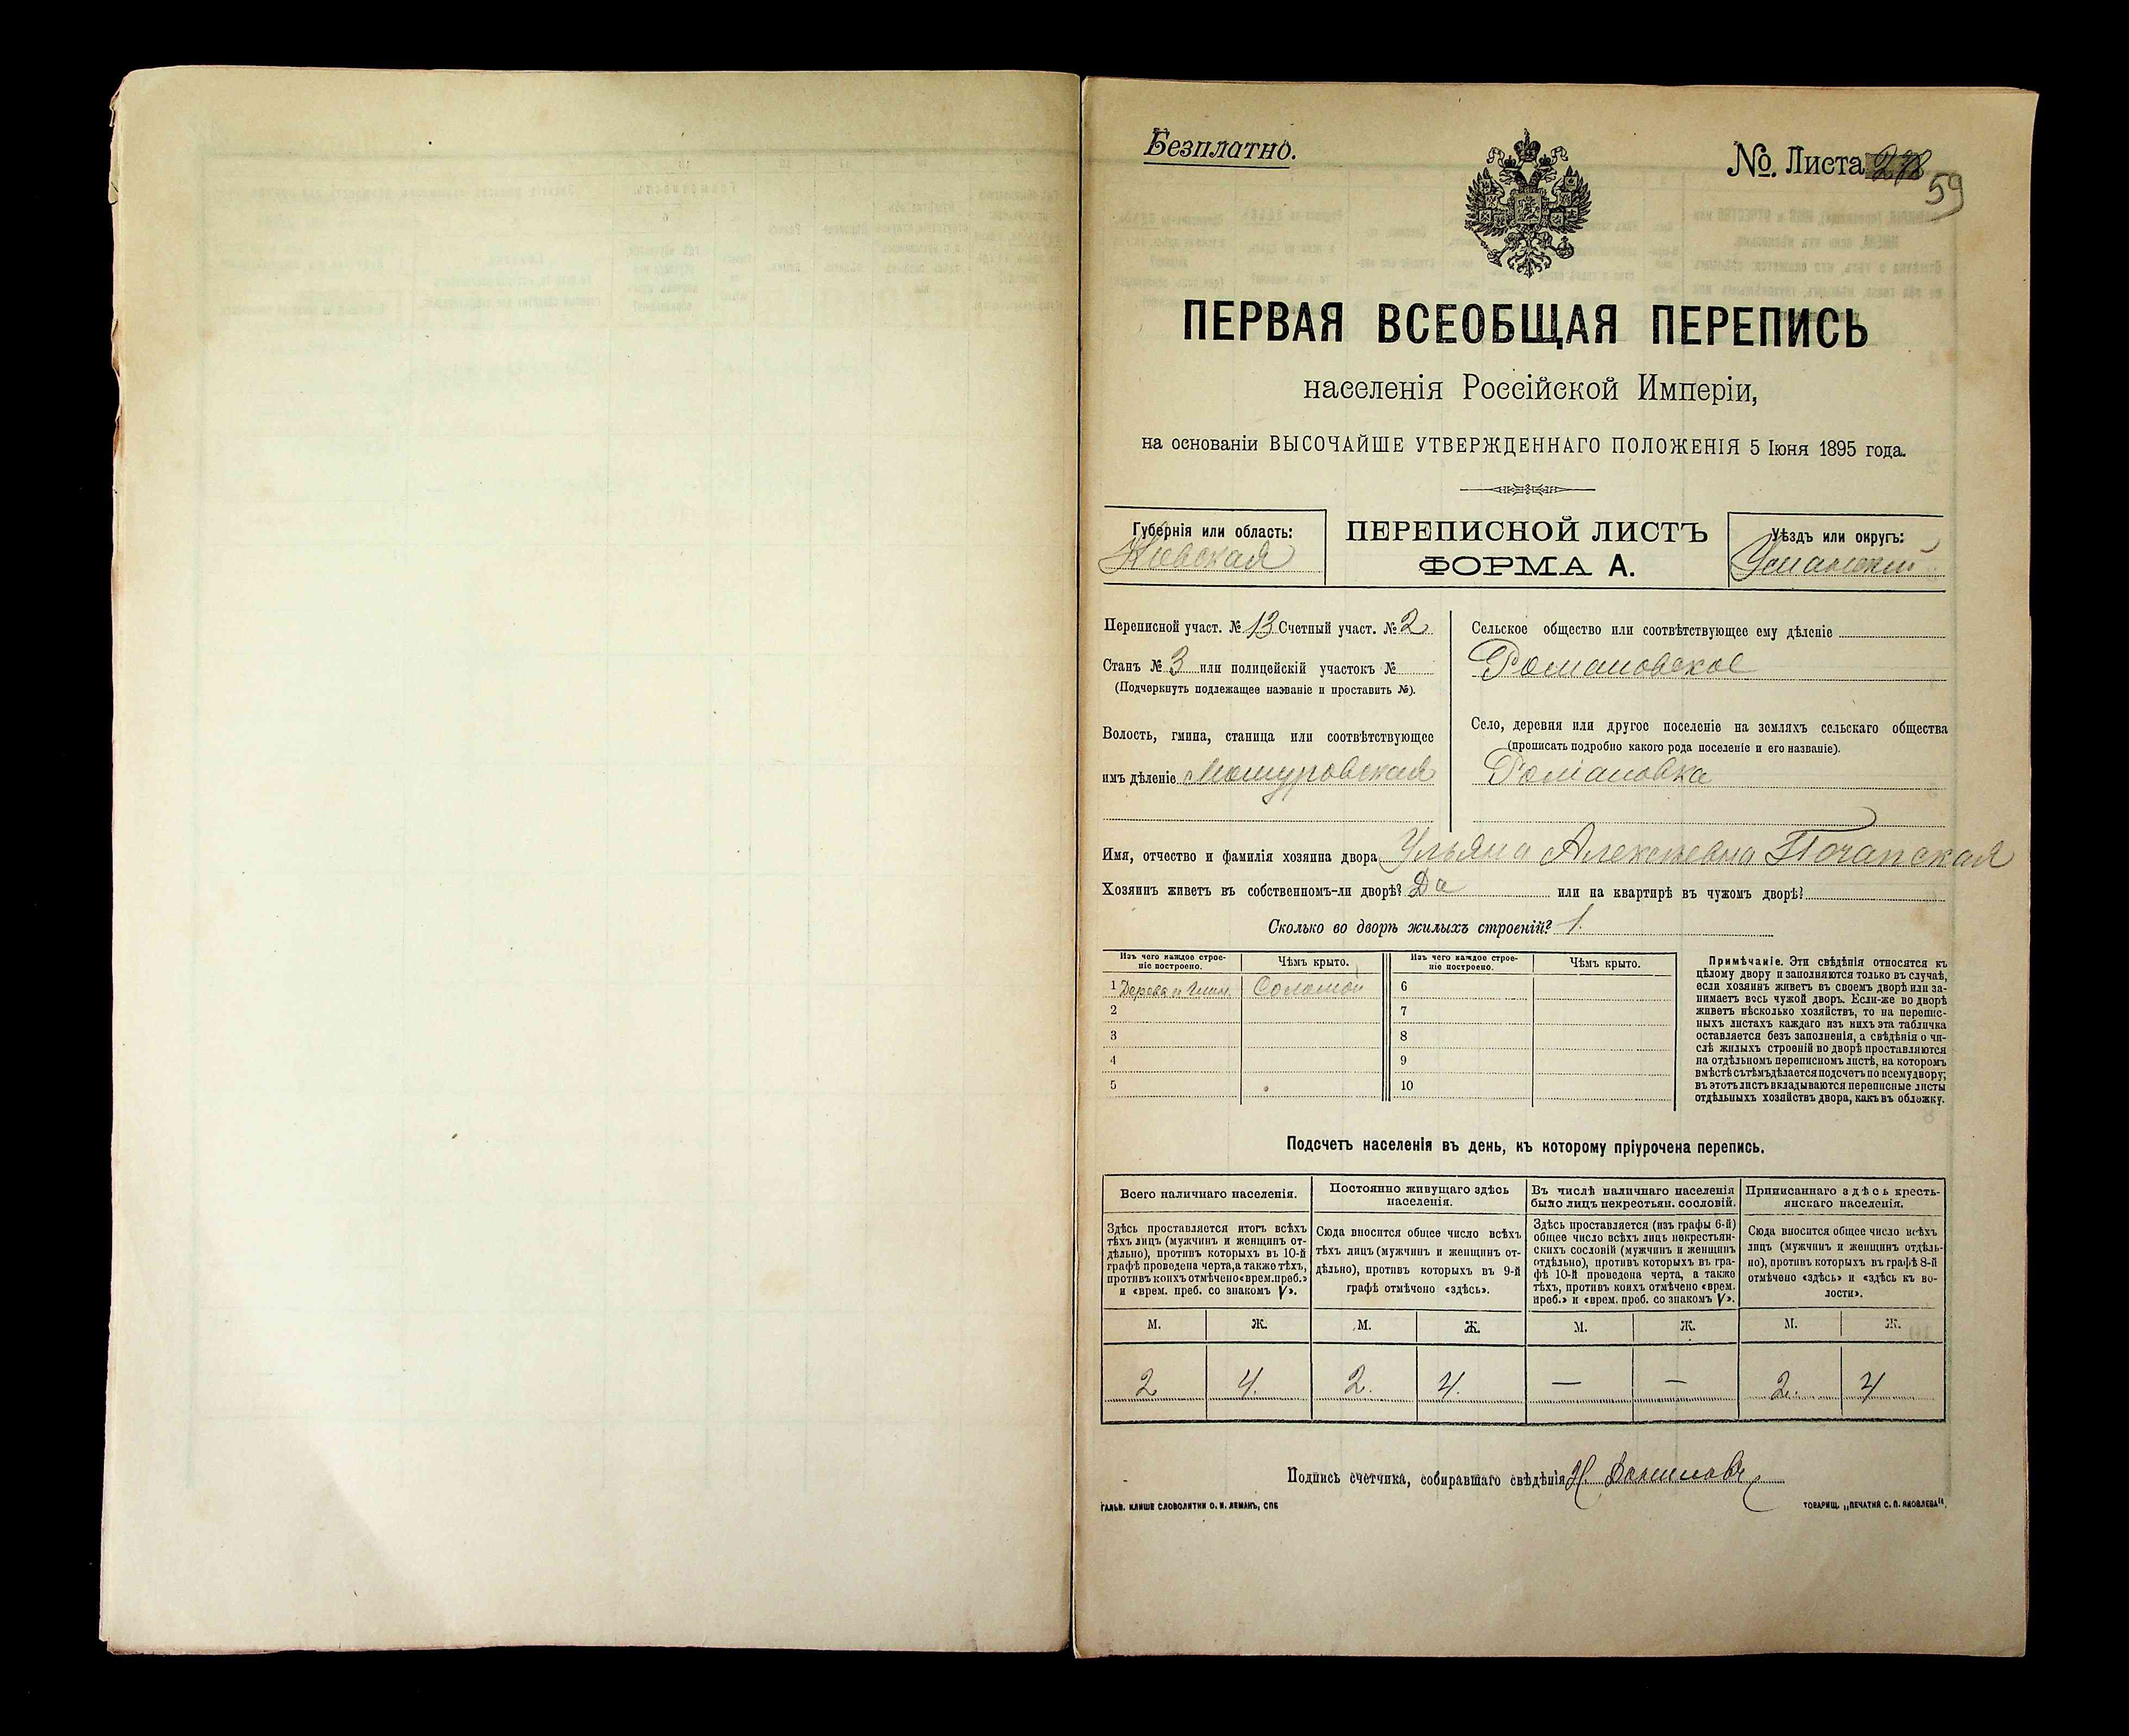 Безплатно.
№. Листа
59
ПЕРВАЯ ВСЕОБЩАЯ ПЕРЕПИСЬ
населенія Россійской Имперіи,
на основаніи ВЫСОЧАЙШЕ УТВЕРЖДЕННАГО ПОЛОЖЕНІЯ 5 Іюня 1895 года.
Губернія или область:
Кіевская
ПЕРЕПИСНОЙ ЛИСТЪ
ФОРМА А.
Уѣздъ или округъ:
Уманскій
Переписной участ. № 13 Счетный участ. № 2
Станъ № 3 или полицейскій участокъ №
(Подчеркнуть подлежащее названіе и проставить №).
Волость, гмина, станица или соотвѣтствующее
имъ дѣленіе Мошуровская
Сельское общество или соотвѣтствующее ему дѣленіе
Романовское
Село, деревня или другое поселеніе на земляхъ сельскаго общества
(прописать подробно какого рода поселеніе и его названіе).
Романовка
Имя, отчество и фамилія хозяина двора Ульяна Алексѣевна Почапская
Хозяинъ живетъ въ собственномъ-ли дворѣ? Да или на квартирѣ въ чужомъ дворѣ?
Сколько во дворѣ жилыхъ строеній? 1.
Изъ чего каждое строе-
ніе построено.
Чѣмъ крыто.
Изъ чего каждое строе-
ніе построено.
Чѣмъ крыто.
1 Дерева и глин. Соломой 6
2 7
3 8
4 9
5 10
Примѣчаніе. Эти свѣдѣнія относятся къ
цѣлому двору и заполняются только въ случаѣ,
если хозяинъ живетъ въ своемъ дворѣ или за-
нимаетъ весь чужой дворъ. Если-же во дворѣ
живетъ нѣсколько хозяйствъ, то на перепис-
ныхъ листахъ каждаго изъ нихъ эта табличка
оставляется безъ заполненія, а свѣдѣнія о чи-
слѣ жилыхъ строеній во дворѣ проставляются
на отдѣльномъ переписномъ листѣ, на которомъ
вмѣстѣ съ тѣмъ дѣлается подсчетъ по всему двору;
въ этотъ листъ вкладываются переписные листы
отдѣльныхъ хозяйствъ двора, какъ въ обложку.
Подсчетъ населенія въ день, къ которому пріурочена перепись.
Всего наличнаго населенія.
Здѣсь проставляется итогъ всѣхъ
тѣхъ лицъ (мужчинъ и женщинъ от-
дѣльно), противъ которыхъ въ 10-й
графѣ проведена черта, а также тѣхъ,
противъ коихъ отмѣчено «врем. преб.»
и «врем. преб. со знакомъ V».
Постоянно живущаго здѣсь
населенія.
Сюда вносится общее число всѣхъ
тѣхъ лицъ (мужчинъ и женщинъ от-
дѣльно), противъ которыхъ въ 9-й
графѣ отмѣчено «здѣсь».
Въ числѣ наличнаго населенія
было лицъ некрестьян. сословій.
Здѣсь проставляется (изъ графы 6-й)
общее число всѣхъ лицъ некрестьян-
скихъ сословій (мужчинъ и женщинъ
отдѣльно), противъ которыхъ въ гра-
фѣ 10-й проведена черта, а также
тѣхъ, противъ коихъ отмѣчено «врем.
преб.» и «врем. преб. со знакомъ V».
Приписаннаго здѣсь кресть-
янскаго населенія.
Сюда вносится общее число всѣхъ
лицъ (мужчинъ и женщинъ отдѣль-
но), противъ которыхъ въ графѣ 8-й
отмѣчено «здѣсь» и «здѣсь къ во-
лости».
М. Ж. М. Ж. М. Ж. М. Ж.
2 4. 2. 4. — — 2. 4
Подпись счетчика, собиравшаго свѣдѣнія
ГАЛЬВ. КЛИШЕ СЛОВОЛИТНИ О. И. ЛЕМАНЪ, СПБ
ТОВАРИЩ. „ПЕЧАТНЯ С. П. ЯКОВЛЕВА“.